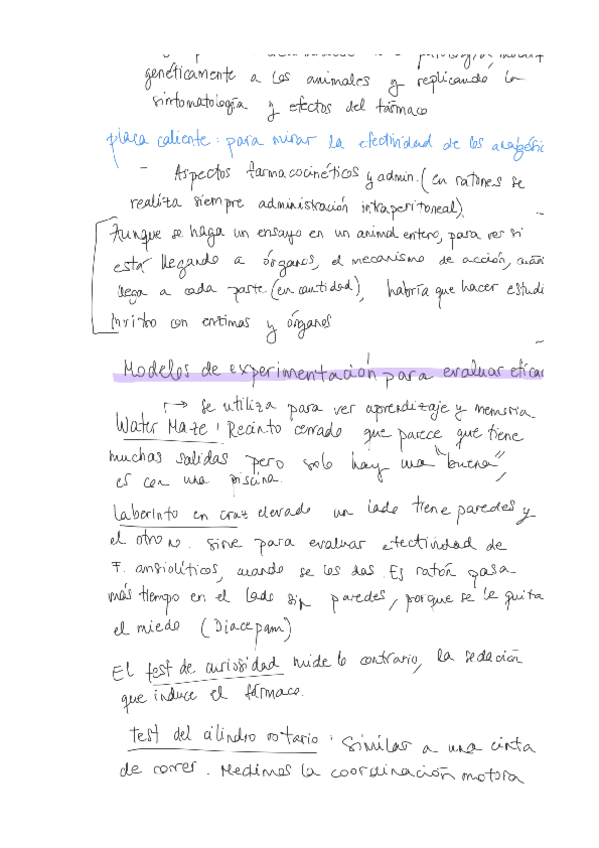 genéticamente a los animales y replicando la
sintomatología y efectos del fármaco
placa caliente: para mirar la efectividad de los
- Aspectos farmacocinéticos y admin. (en ratones se
realiza siempre administración intraperitoneal)
Aunque se haga un ensayo en un animal entero, para ver si
está llegando a órganos, el mecanismo de acción,
llega a cada parte (en cantidad), habría que hacer estudi
invitro con enzimas y órganos
Modelos de experimentación para evaluar eficac
→ Se utiliza para ver aprendizaje y memoria
Water Maze: Recinto cerrado que parece que tiene
muchas salidas pero solo hay una "buena",
es con una piscina.
Laberinto en cruz elevado un lado tiene paredes y
el otro no. Sirve para evaluar efectividad de
F. ansiolíticos, cuando se les das. El ratón pasa
más tiempo en el lado sin paredes, porque se le quita
el miedo (Diacepam)
El test de curiosidad mide lo contrario, la sedación
que induce el fármaco.
Test del cilindro rotario: Similar a una cinta
de correr. Medimos la coordinación motora